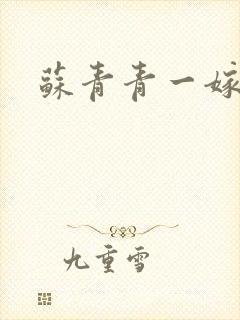 蘇青青一嫁
九重雪